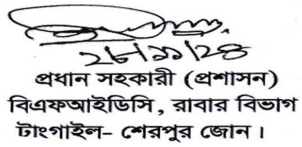 ২৮/১১/২৪
প্রধান সহকারী (প্রশাসন)
বিএফআইডিসি, রাবার বিভাগ
টাংগাইল- শেরপুর জোন।